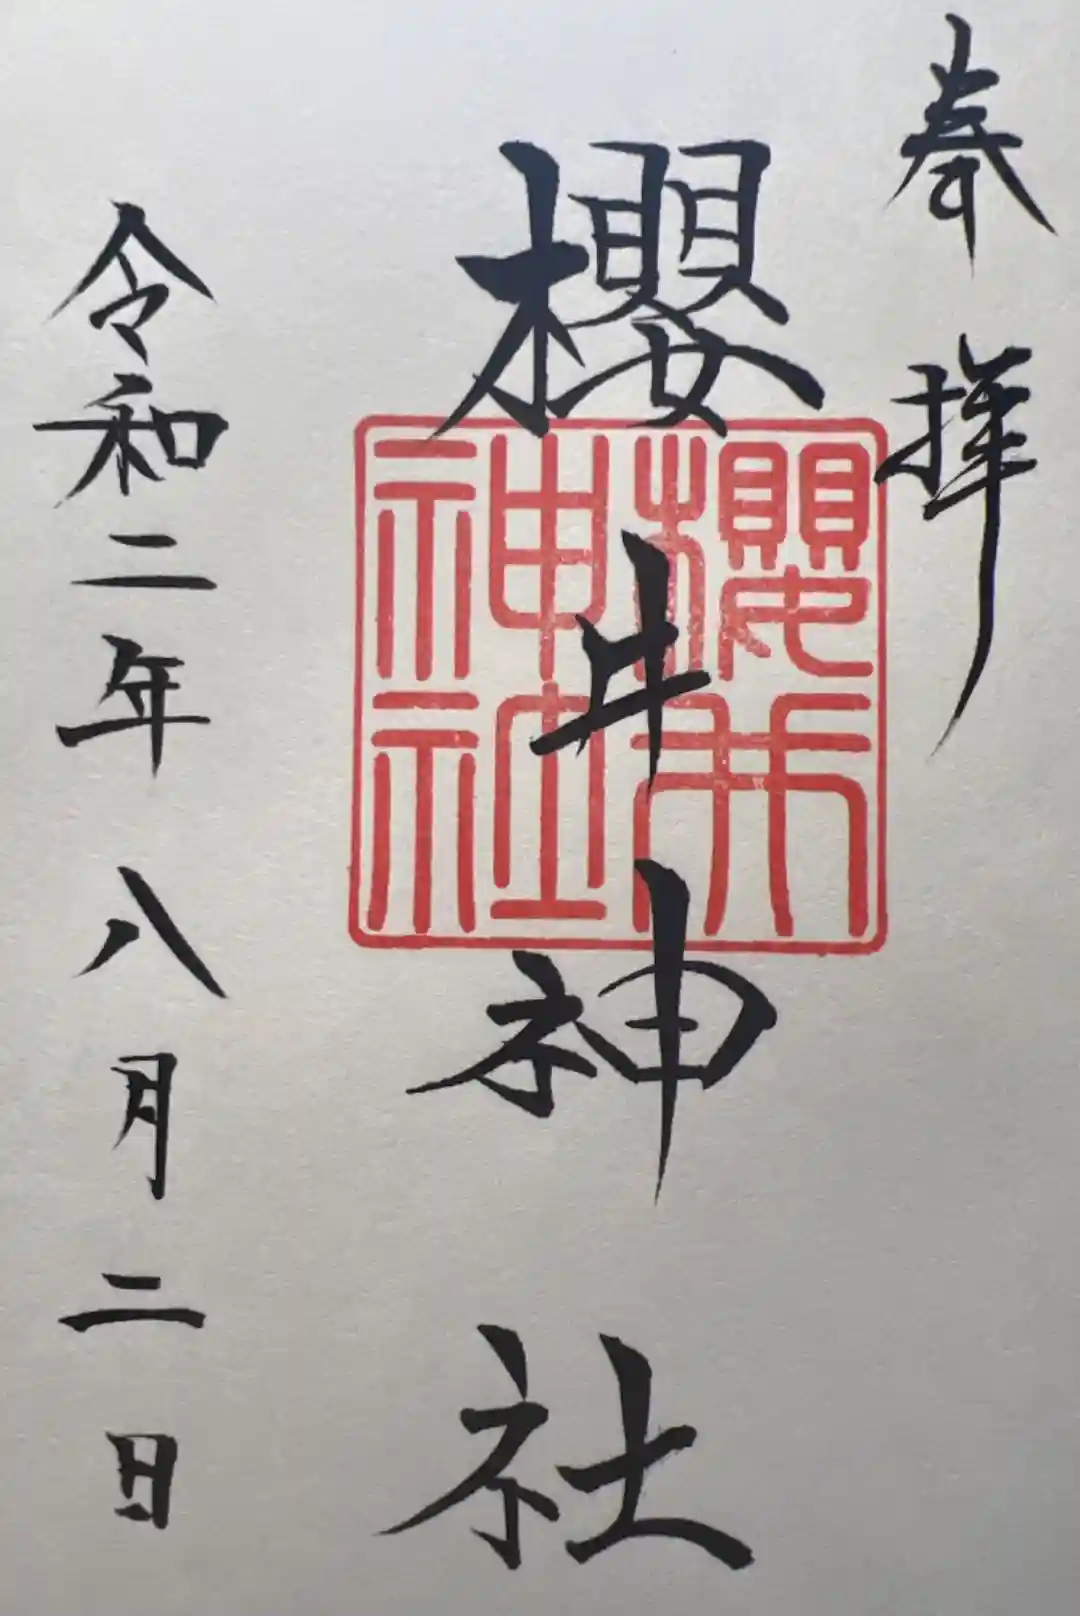 奉拝
櫻井神社
櫻井
神社
令和二年八月二日